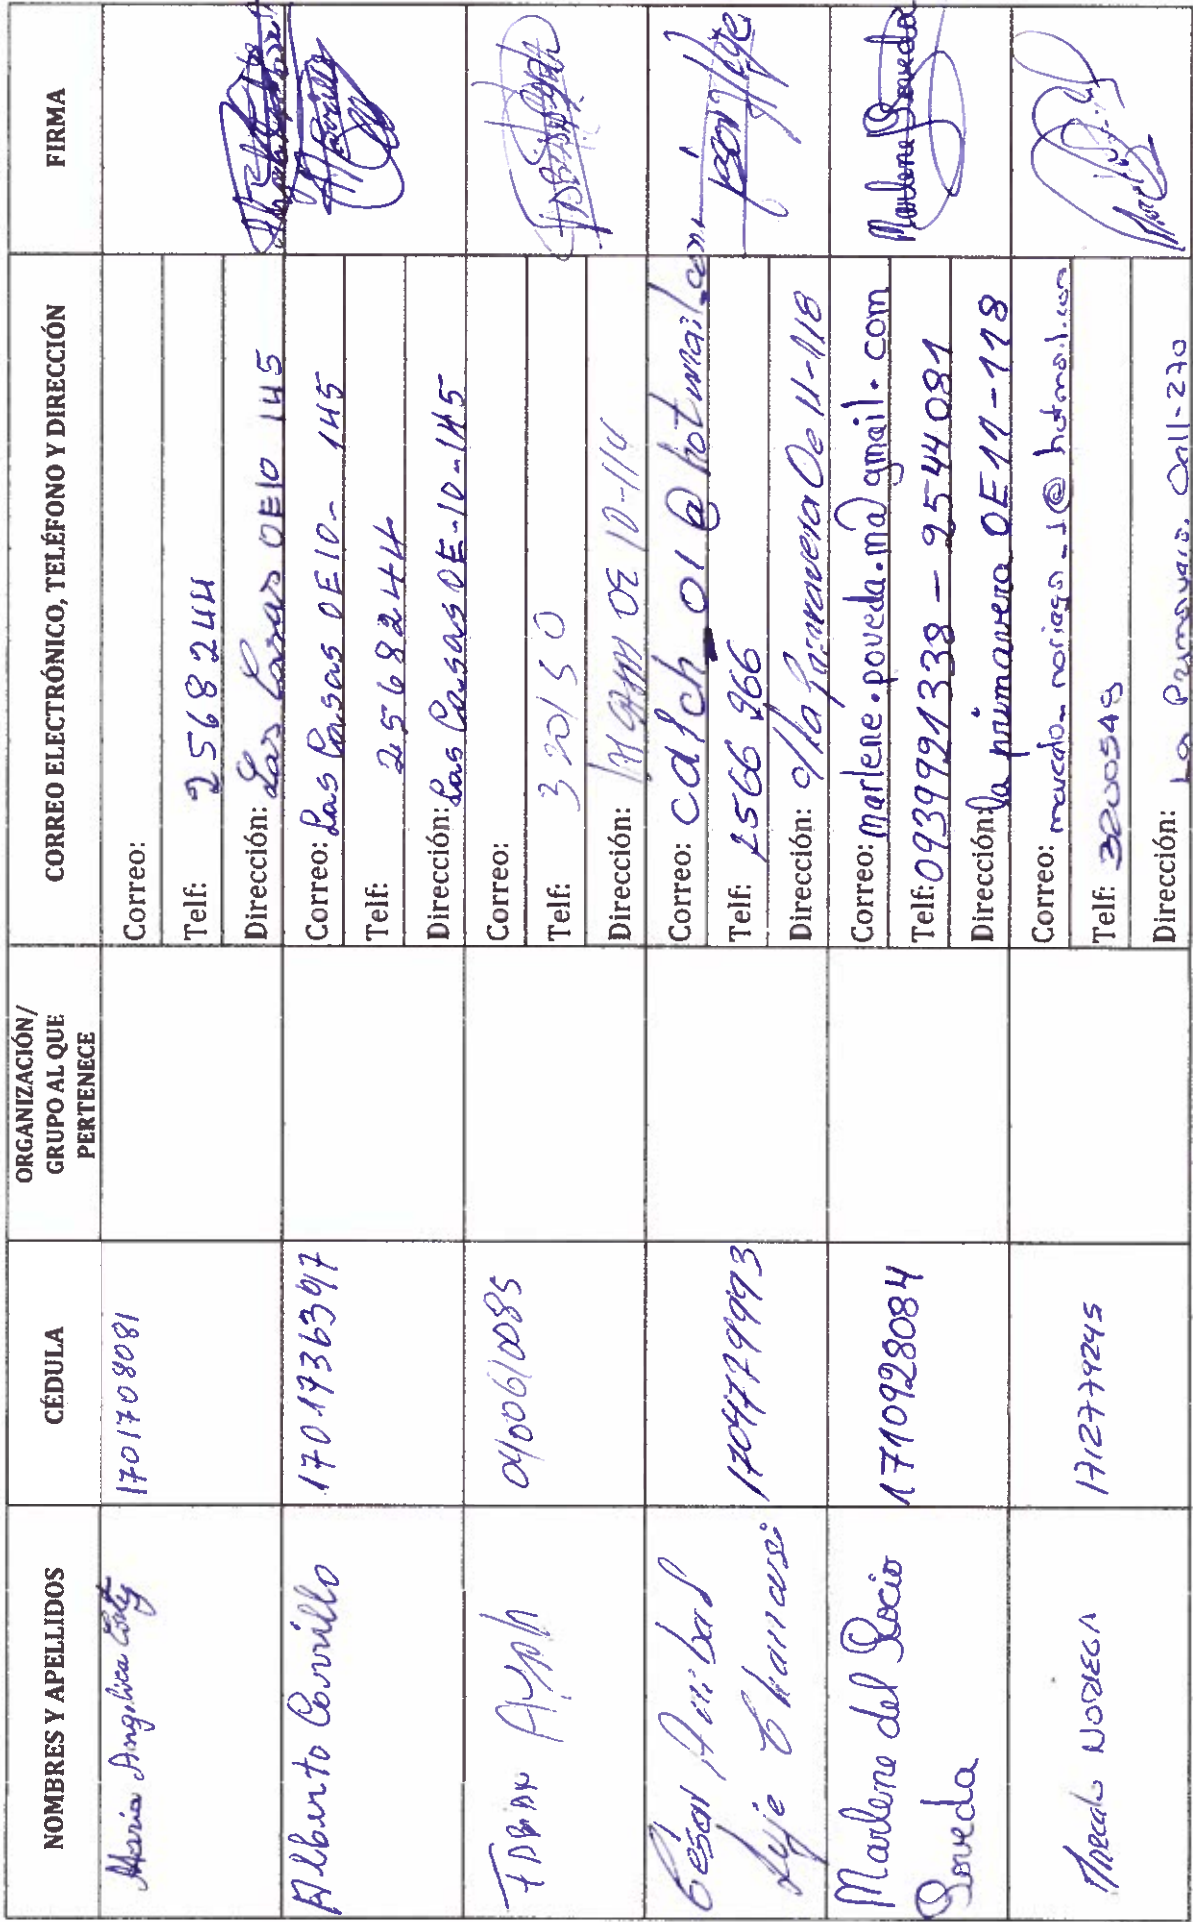 NOMBRES Y APELLIDOS
CÉDULA
ORGANIZACIÓN/
GRUPO AL QUE
PERTENECE
CORREO ELECTRÓNICO, TELÉFONO Y DIRECCIÓN
FIRMA
Maria Angelica
1701708081
Correo:
Telf: 2568244
Dirección: Las Casas OE10 145
Alberto Carrillo
Correo: Las Casas OE10- 145
Telf: 2568244
Dirección: Las Casas OE-10-145
FABIAN
0400610085
Correo:
Telf: 320150
Dirección: OE 10-114
César Anibal
1704779993
Correo: cdlch_01@hotmail.com
Telf: 2566966
Dirección: c/ la primavera Oe 11-118
Marlene del Rocio
Poveda
1710928084
Correo: marlene.poveda.ma@gmail.com
Telf: 0939991338 - 2544081
Dirección: la primavera OE11-118
Marlene Poveda
Marcelo NORIEGA
1712779245
Correo: marcelo_noriega_1@hotmail.com
Telf: 3200549
Dirección: La Primavera Oe11-270